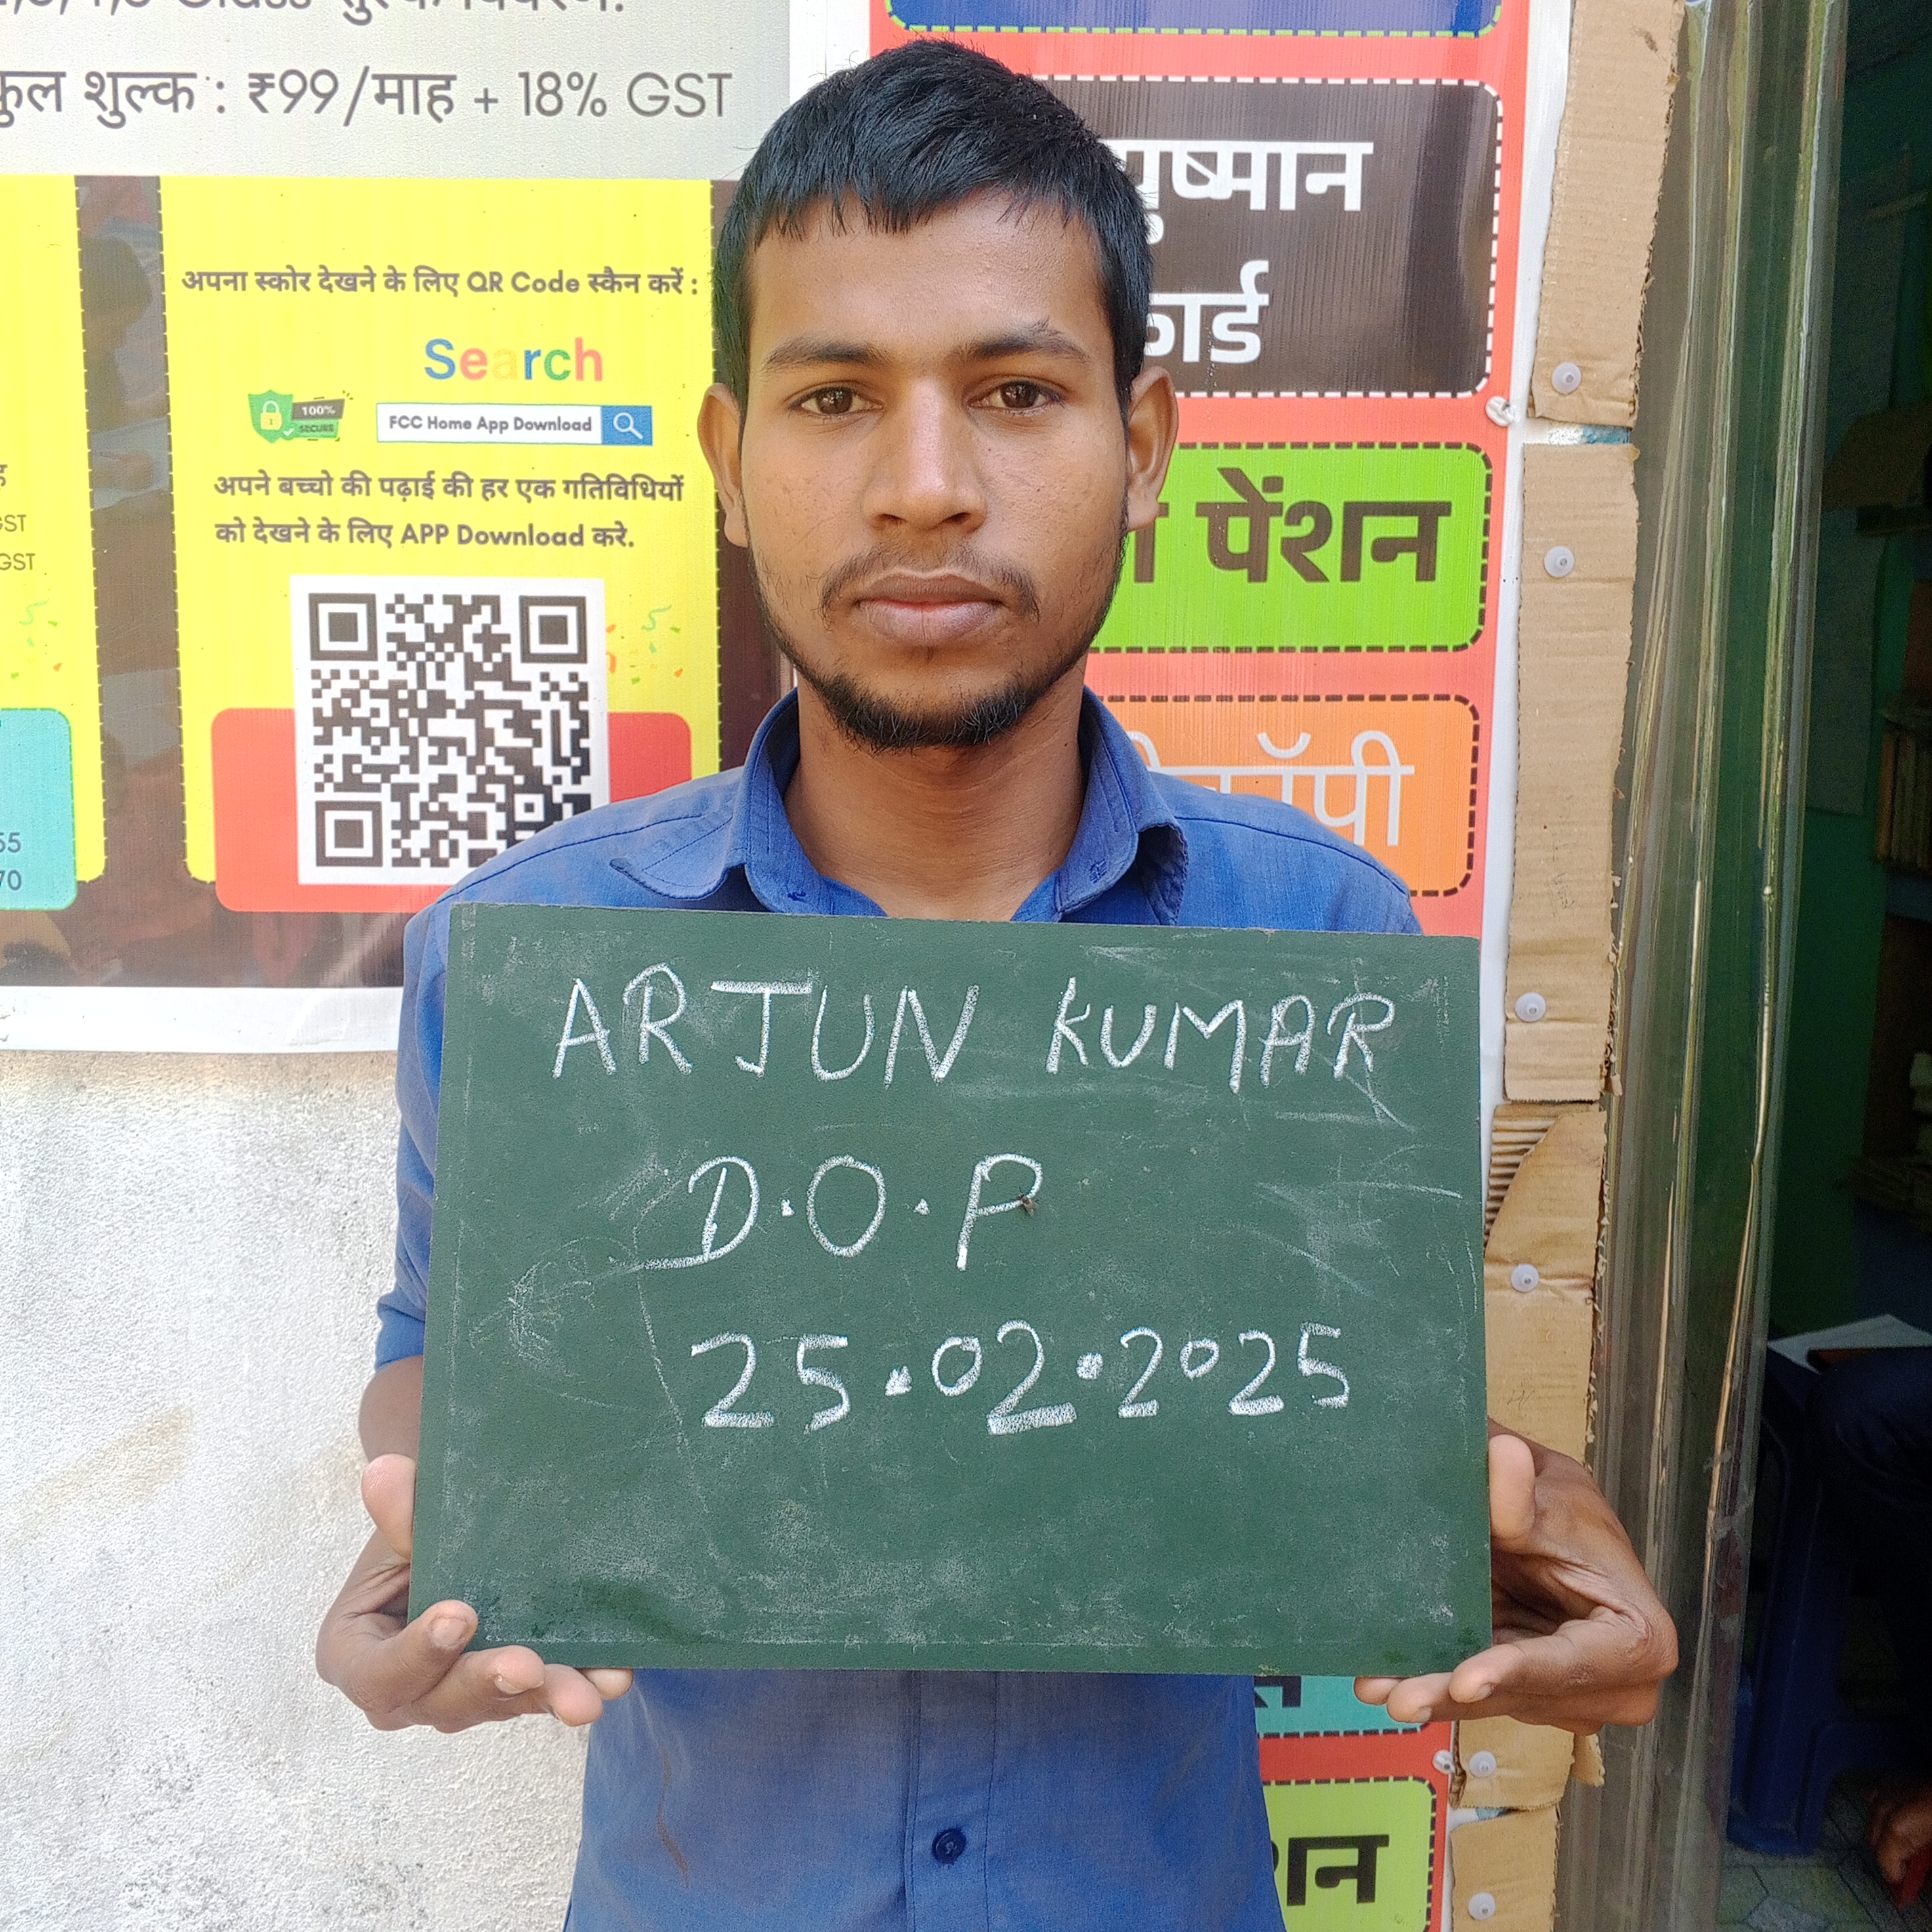 कुल शुल्क : ₹99/माह + 18% GST
अपना स्कोर देखने के लिए QR Code स्कैन करें :
Search
100%
SECURE
FCC Home App Download
अपने बच्चो की पढ़ाई की हर एक गतिविधियों
को देखने के लिए APP Download करे.
GST
GST
55
70
पेंशन
ARJUN KUMAR
D.O.P
25.02.2025